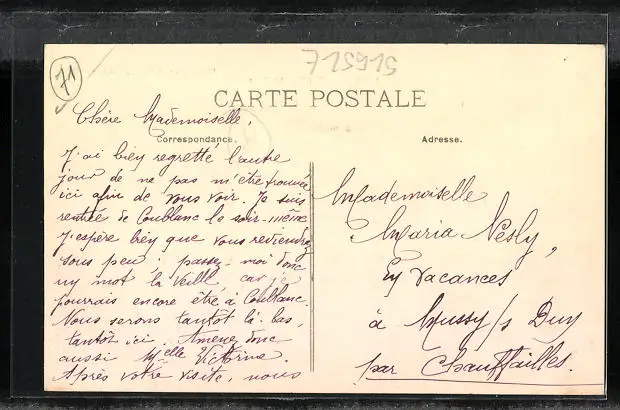 71
715915
CARTE POSTALE
Chère Mademoiselle.
Correspondance.
Adresse.
J'ai biey regretté l'autre
jour de ne pas m'être trouvée
ici afin de vous voir. Je suis
rentrée de Coublanc le soir même
J'espère biey que vous reviendrez
sous peu ; passez-moi donc
uy mot la veille, car je
pourrais encore être à Coublanc.
Nous serons tantôt là-bas,
tantôt ici. Amenez donc
aussi Melle Victorine.
Après votre visite, nous
Mademoiselle
Maria Nesly,
Ey Vacances
à Mussy/s Duy
par Chauffailles.